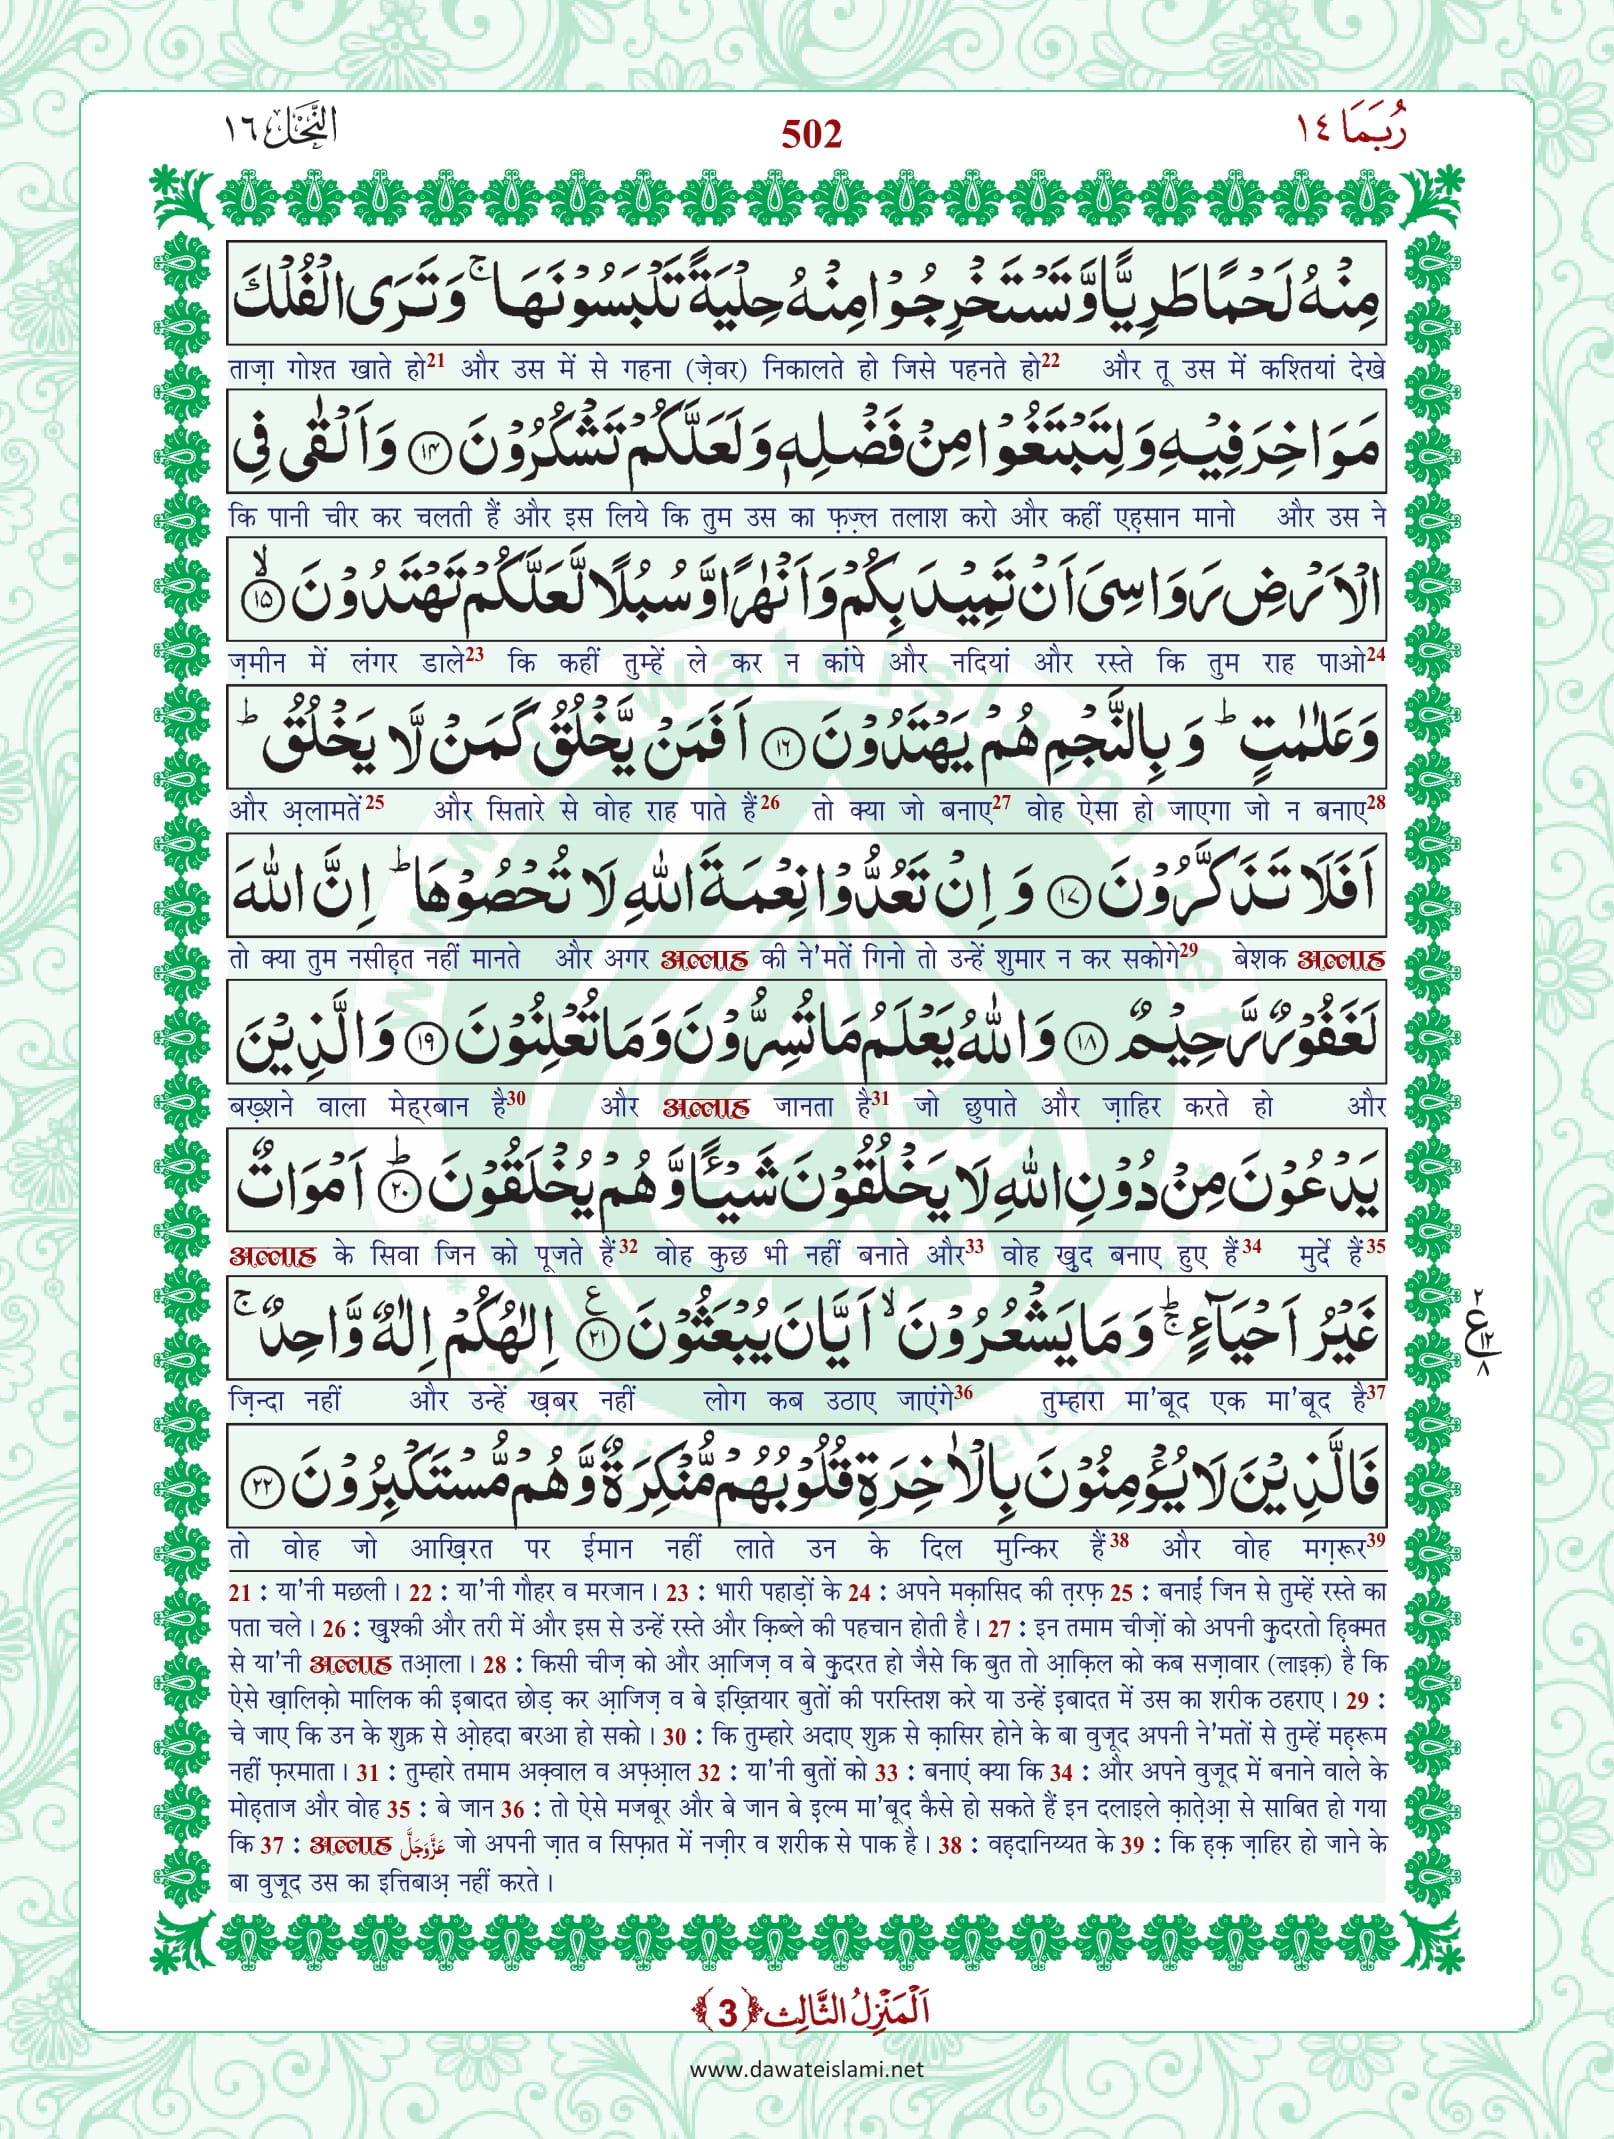 النَّحْل ١٦
502
رُبَمَا ١٤
مِنْهُ لَحْمًا طَرِيًّا وَّ تَسْتَخْرِجُوْا مِنْهُ حِلْيَةً تَلْبَسُوْنَهَا ۚ وَ تَرَى الْفُلْكَ
ताज़ा गोश्त खाते हो21 और उस में से गहना (ज़ेवर) निकालते हो जिसे पहनते हो22 और तू उस में कश्तियां देखे
مَوَاخِرَ فِيْهِ وَ لِتَبْتَغُوْا مِنْ فَضْلِهٖ وَ لَعَلَّكُمْ تَشْكُرُوْنَ ﴿۱۴﴾ وَ اَلْقٰى فِی
कि पानी चीर कर चलती हैं और इस लिये कि तुम उस का फ़ज़्ल तलाश करो और कहीं एह़सान मानो और उस ने
الْاَرْضِ رَوَاسِیَ اَنْ تَمِیْدَ بِكُمْ وَ اَنْهٰرًا وَّ سُبُلًا لَّعَلَّكُمْ تَهْتَدُوْنَ ﴿۱۵﴾ۙ
ज़मीन में लंगर डाले23 कि कहीं तुम्हें ले कर न कांपे और नदियां और रस्ते कि तुम राह पाओ24
وَ عَلٰمٰتٍ ؕ وَ بِالنَّجْمِ هُمْ یَهْتَدُوْنَ ﴿۱۶﴾ اَفَمَنْ یَّخْلُقُ كَمَنْ لَّا یَخْلُقُ ؕ
और अ़लामतें25 और सितारे से वोह राह पाते हैं26 तो क्या जो बनाए27 वोह ऐसा हो जाएगा जो न बनाए28
اَفَلَا تَذَكَّرُوْنَ ﴿۱۷﴾ وَ اِنْ تَعُدُّوْا نِعْمَةَ اللّٰهِ لَا تُحْصُوْهَا ؕ اِنَّ اللّٰهَ
तो क्या तुम नसीह़त नहीं मानते और अगर अल्लाह की ने'मतें गिनो तो उन्हें शुमार न कर सकोगे29 बेशक अल्लाह
لَغَفُوْرٌ رَّحِیْمٌ ﴿۱۸﴾ وَ اللّٰهُ یَعْلَمُ مَا تُسِرُّوْنَ وَ مَا تُعْلِنُوْنَ ﴿۱۹﴾ وَ الَّذِیْنَ
बख़्शने वाला मेहरबान है30 और अल्लाह जानता है31 जो छुपाते और ज़ाहिर करते हो और
یَدْعُوْنَ مِنْ دُوْنِ اللّٰهِ لَا یَخْلُقُوْنَ شَیْـًٔا وَّ هُمْ یُخْلَقُوْنَ ﴿۲۰﴾ؕ اَمْوَاتٌ
अल्लाह के सिवा जिन को पूजते हैं32 वोह कुछ भी नहीं बनाते और33 वोह ख़ुद बनाए हुए हैं34 मुर्दे हैं35
غَیْرُ اَحْیَآءٍ ۚؕ وَ مَا یَشْعُرُوْنَ ۙ اَیَّانَ یُبْعَثُوْنَ ﴿۲۱﴾ع اِلٰهُكُمْ اِلٰهٌ وَّاحِدٌ ۚ
۲ ع ۱۲ ۸
ज़िन्दा नहीं और उन्हें ख़बर नहीं लोग कब उठाए जाएंगे36 तुम्हारा मा'बूद एक मा'बूद है37
فَالَّذِیْنَ لَا یُؤْمِنُوْنَ بِالْاٰخِرَةِ قُلُوْبُهُمْ مُّنْكِرَةٌ وَّ هُمْ مُّسْتَكْبِرُوْنَ ﴿۲۲﴾
तो वोह जो आख़िरत पर ईमान नहीं लाते उन के दिल मुन्किर हैं38 और वोह मग़रूर39
21 : या'नी मछली। 22 : या'नी गौहर व मरजान। 23 : भारी पहाड़ों के 24 : अपने मक़ासिद की त़रफ़ 25 : बनाईं जिन से तुम्हें रस्ते का
पता चले। 26 : ख़ुश्की और तरी में और इस से उन्हें रस्ते और क़िब्ले की पहचान होती है। 27 : इन तमाम चीज़ों को अपनी कुदरतो ह़िक्मत
से या'नी अल्लाह तआ़ला। 28 : किसी चीज़ को और आ़जिज़ व बे कुदरत हो जैसे कि बुत तो आ़क़िल को कब सज़ावार (लाइक़) है कि
ऐसे ख़ालिक़ो मालिक की इबादत छोड़ कर आ़जिज़ व बे इख़्तियार बुतों की परस्तिश करे या उन्हें इबादत में उस का शरीक ठहराए। 29 :
चे जाए कि उन के शुक्र से ओ़हदा बरआ हो सको। 30 : कि तुम्हारे अदाए शुक्र से क़ासिर होने के बा वुजूद अपनी ने'मतों से तुम्हें मह़रूम
नहीं फ़रमाता। 31 : तुम्हारे तमाम अक़्वाल व अफ़्आ़ल 32 : या'नी बुतों को 33 : बनाएं क्या कि 34 : और अपने वुजूद में बनाने वाले के
मोह़ताज और वोह 35 : बे जान 36 : तो ऐसे मजबूर और बे जान बे इ़ल्म मा'बूद कैसे हो सकते हैं इन दलाइले क़ात़ेआ़ से साबित हो गया
कि 37 : अल्लाह عَزَّوَجَلَّ जो अपनी ज़ात व सिफ़ात में नज़ीर व शरीक से पाक है। 38 : वह़दानिय्यत के 39 : कि ह़क़ ज़ाहिर हो जाने के
बा वुजूद उस का इत्तिबाअ़ नहीं करते।
اَلْمَنْزِلُ الثَّالِث ﴿3﴾
www.dawateislami.net